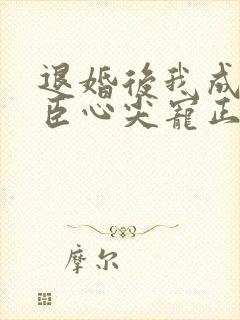 退婚後我成
臣心尖寵正
摩尔